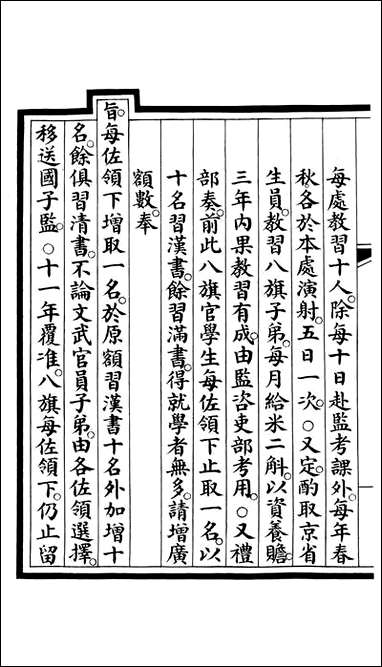 每處教習十人。除每十日赴監考課外。每年春
秋各於本處演射。五日一次。○又定。酌取京省
生員。教習八旗子弟。每月給米二斛。以資養贍。
三年內果教習有成。由監咨吏部考用。○又禮
部奏。前此八旗官學生每佐領下止取一名。以
十名習漢書。餘習滿書。得就學者無多。請增廣
額數奉
旨。每佐領下增取一名。於原額習漢書十名外加增十
名。餘俱習清書。不論文武官員子弟。由各佐領選擇。
移送國子監。○十一年覆准。八旗每佐領下。仍止留